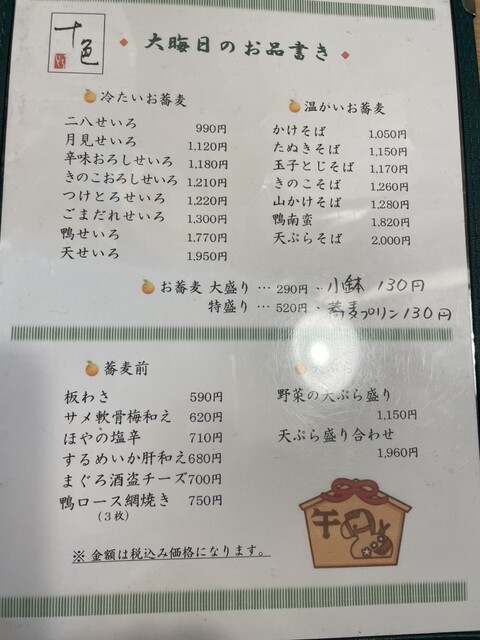 十色
大晦日のお品書き
冷たいお蕎麦
二八せいろ 990円
月見せいろ 1,120円
辛味おろしせいろ 1,180円
きのこおろしせいろ 1,210円
つけとろせいろ 1,220円
ごまだれせいろ 1,300円
鴨せいろ 1,770円
天せいろ 1,950円
温かいお蕎麦
かけそば 1,050円
たぬきそば 1,150円
玉子とじそば 1,170円
きのこそば 1,260円
山かけそば 1,280円
鴨南蛮 1,820円
天ぷらそば 2,000円
お蕎麦 大盛り … 290円・小鉢 130円
特盛り … 520円・蕎麦プリン130円
蕎麦前
板わさ 590円
サメ軟骨梅和え 620円
ほやの塩辛 710円
するめいか肝和え 680円
まぐろ酒盗チーズ 700円
鴨ロース網焼き 750円
(3枚)
天ぷら
野菜の天ぷら盛り
1,150円
天ぷら盛り合わせ
1,960円
午
※ 金額は税込み価格になります。